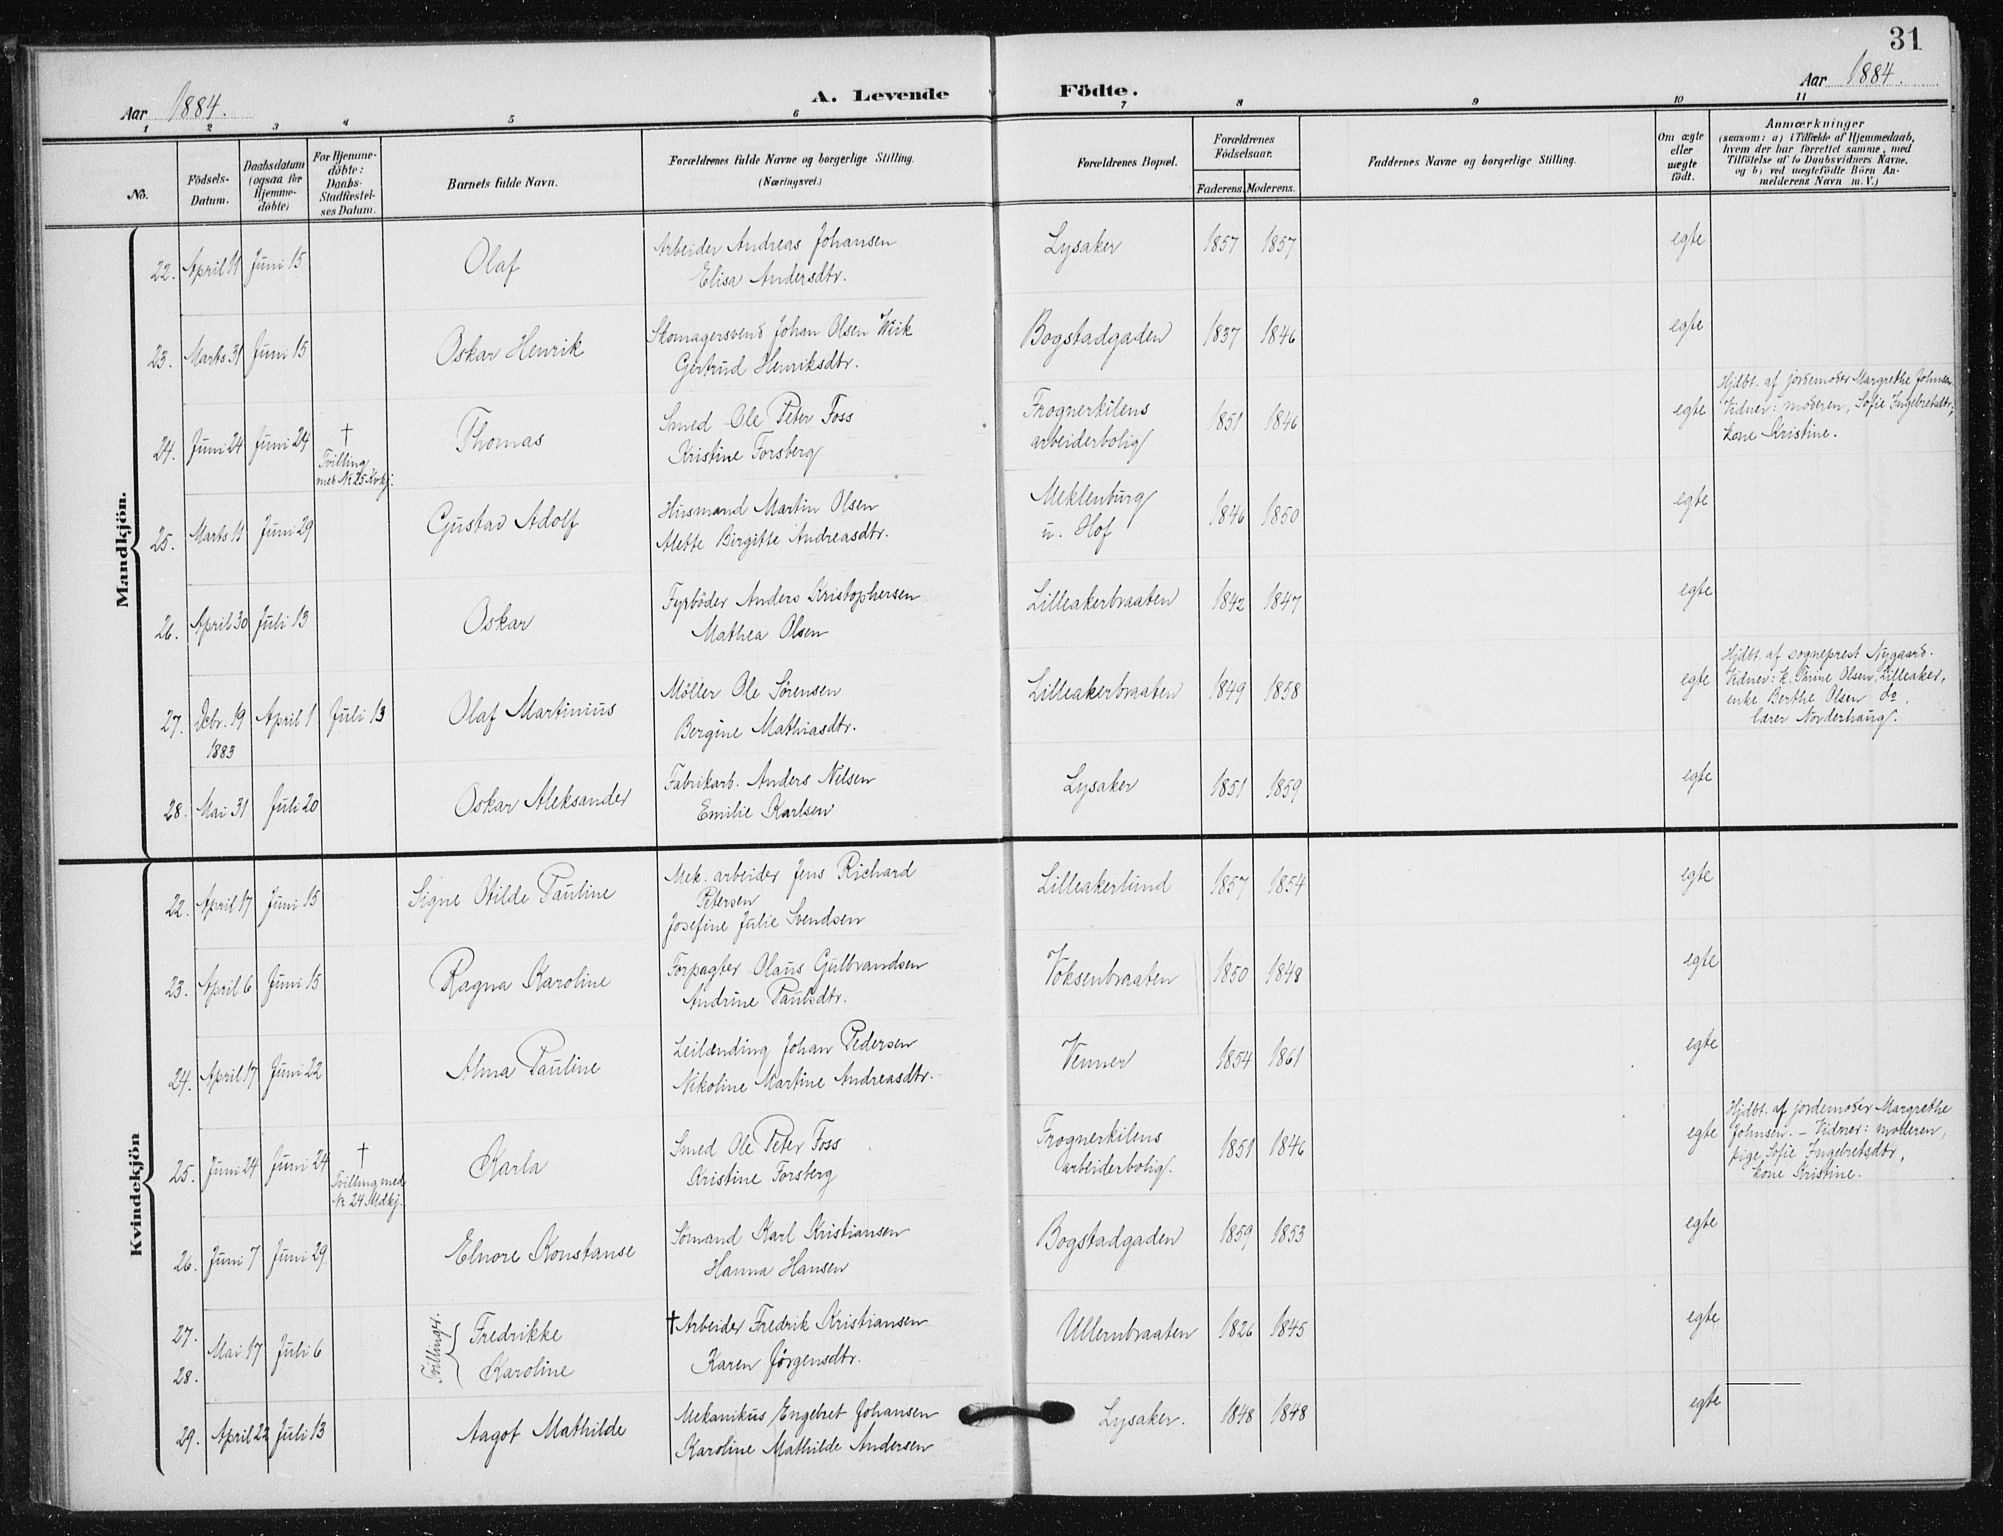 31
Aar 1884. A. Levende Födte. Aar 1884.
1 2 3 4 5 6 7 8 9 10 11
No.
Födsels-Datum.
Daabsdatum (ogsaa for Hjemme-döbte)
For Hjemme-döbte: Daabs-Stadfæstel-ses Datum.
Barnets fulde Navn.
Forældrenes fulde Navne og borgerlige Stilling.
(Næringsvei.)
Forældrenes Bopæl.
Forældrenes Födselsaar.
Faderens. Moderens.
Faddernes Navne og borgerlige Stilling.
Om ægte eller uægte födt.
Anmærkninger
(saasom: a) i Tilfælde af Hjemmedaab,
hvem der har forrettet samme, med
Tilföielse af to Daabsvidners Navne,
og b) ved uægtefödte Börn An-
melderens Navn m. V.)
Mandkjön.
22. April 11 Juni 15 Olaf Arbeider Andreas Johansen Lysaker 1857 1857 egte
Elisa Andersdtr.
23. Marts 31 Juni 15 Oskar Henrik Skomagersvend Johan Olsen Wiik Bogstadgaden 1837 1846 egte
Gertrud Henriksdtr.
24. Juni 24 Juni 24 † Thomas Smed Ole Peter Foss Frognerkilens 1851 1846 egte Hjdbt. af jordemoder Margrethe Johnsen
Tvilling Kristine Forsberg arbeiderbolig Vidner: moderen, Sofie Ingebretsdtr,
med No 25 Kvkj. kone Kristine.
25. Marts 11 Juni 29 Gustav Adolf Husmand Martin Olsen Meklenburg 1846 1850 egte
Alette Birgitte Andreasdtr. u. Hof
26. April 30 Juli 13 Oskar Fyrböder Anders Kristophersen Lilleakerbraaten 1842 1847 egte
Mathea Olsen
27. Decbr. 19 April 1 Juli 13 Olaf Martinius Möller Ole Sörensen Lilleakerbraaten 1849 1858 egte Hjdbt. af sogneprest Nygaard.
1883 Bergine Mathiasdtr. Vidner: k. Karine Olsen, Lilleaker,
enke Berthe Olsen do,
lærer Norderhaug.
28. Mai 31 Juli 20 Oskar Aleksander Fabrikarb. Anders Nilsen Lysaker 1851 1859 egte
Emilie Karlsen
Kvindekjön
22. April 17 Juni 15 Signe Otilde Pauline Mek. arbeider Jens Richard Lilleakerlund 1857 1854 egte
Petersen
Josefine Julie Svendsen
23. April 6 Juni 15 Ragna Karoline Forpagter Olaus Gulbrandsen Voksenbraaten 1850 1848 egte
Andrine Paulsdtr.
24. April 17 Juni 22 Alma Pauline Leilænding Johan Pedersen Venner 1854 1861 egte
Nikoline Martine Andreasdtr.
25. Juni 24 Juni 24 † Karla Smed Ole Peter Foss Frognerkilens 1851 1846 egte Hjdbt. af jordemoder Margrethe
Tvilling med Kristine Forsberg arbeiderbolig. Johnsen. – Vidner: moderen,
No 24 Mdkj. pige Sofie Ingebretsdtr,
kone Kristine.
26. Juni 7 Juni 29 Elnore Konstanse Sömand Karl Kristiansen Bogstadgaden 1859 1853 egte
Hanna Hansen
27. Mai 17 Juli 6 Tvillinger. Fredrikke † Arbeider Fredrik Kristiansen Ullernbraaten 1826 1845 egte
28. Karoline Karen Jörgensdtr.
29. April 22 Juli 13 Aagot Mathilde Mekanikus Engebret Johansen Lysaker. 1848 1848 egte
Karoline Mathilde Andersen